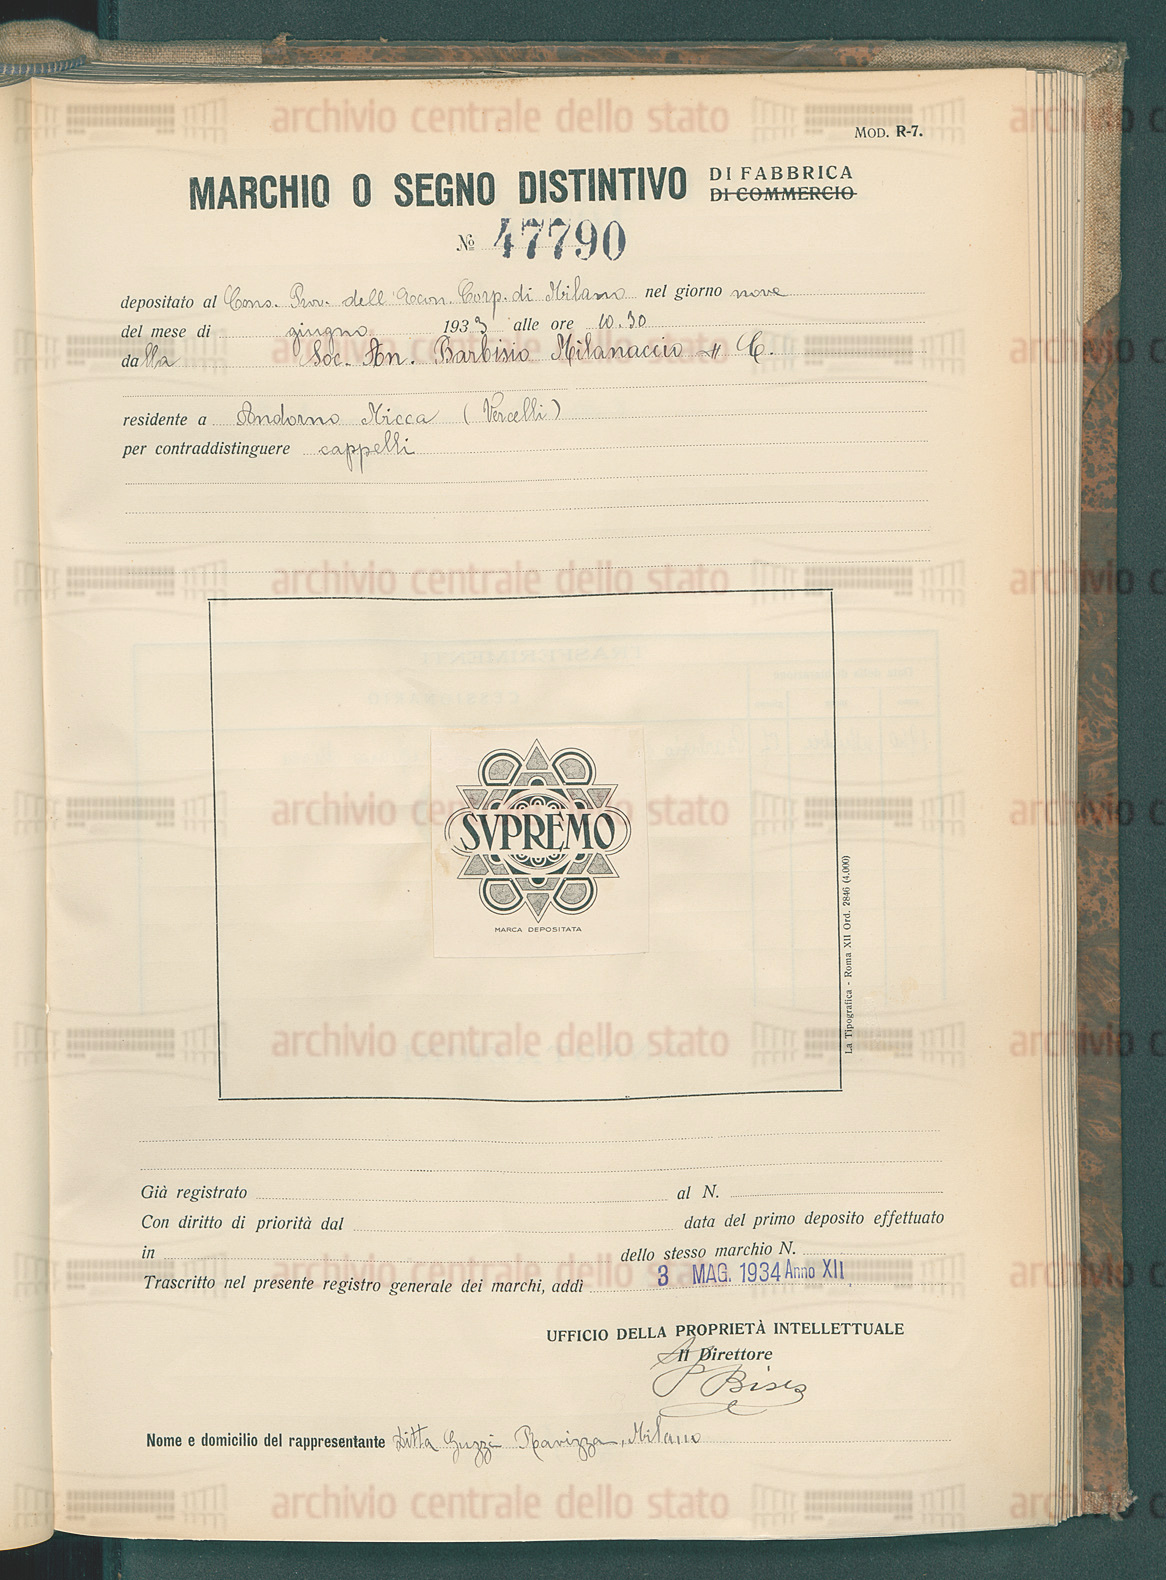 MOD. R-7.
MARCHIO O SEGNO DISTINTIVO DI FABBRICA
DI COMMERCIO
No 47790
depositato al Cons. Prov. dell'Econ. Corp. di Milano nel giorno nove
del mese di giugno 1933 alle ore 10.30
dalla Soc. An. Barbisio Milanaccio & C.
residente a Andorno Micca (Vercelli)
per contraddistinguere cappelli
SVPREMO
MARCA DEPOSITATA
La Tipografica - Roma XII Ord. 2846 (4.000)
Già registrato al N.
Con diritto di priorità dal data del primo deposito effettuato
in dello stesso marchio N.
Trascritto nel presente registro generale dei marchi, addì 3 MAG. 1934 Anno XII
UFFICIO DELLA PROPRIETÀ INTELLETTUALE
Il Direttore
Nome e domicilio del rappresentante Ditta Guzzi Ravizza, Milano
archivio centrale dello stato